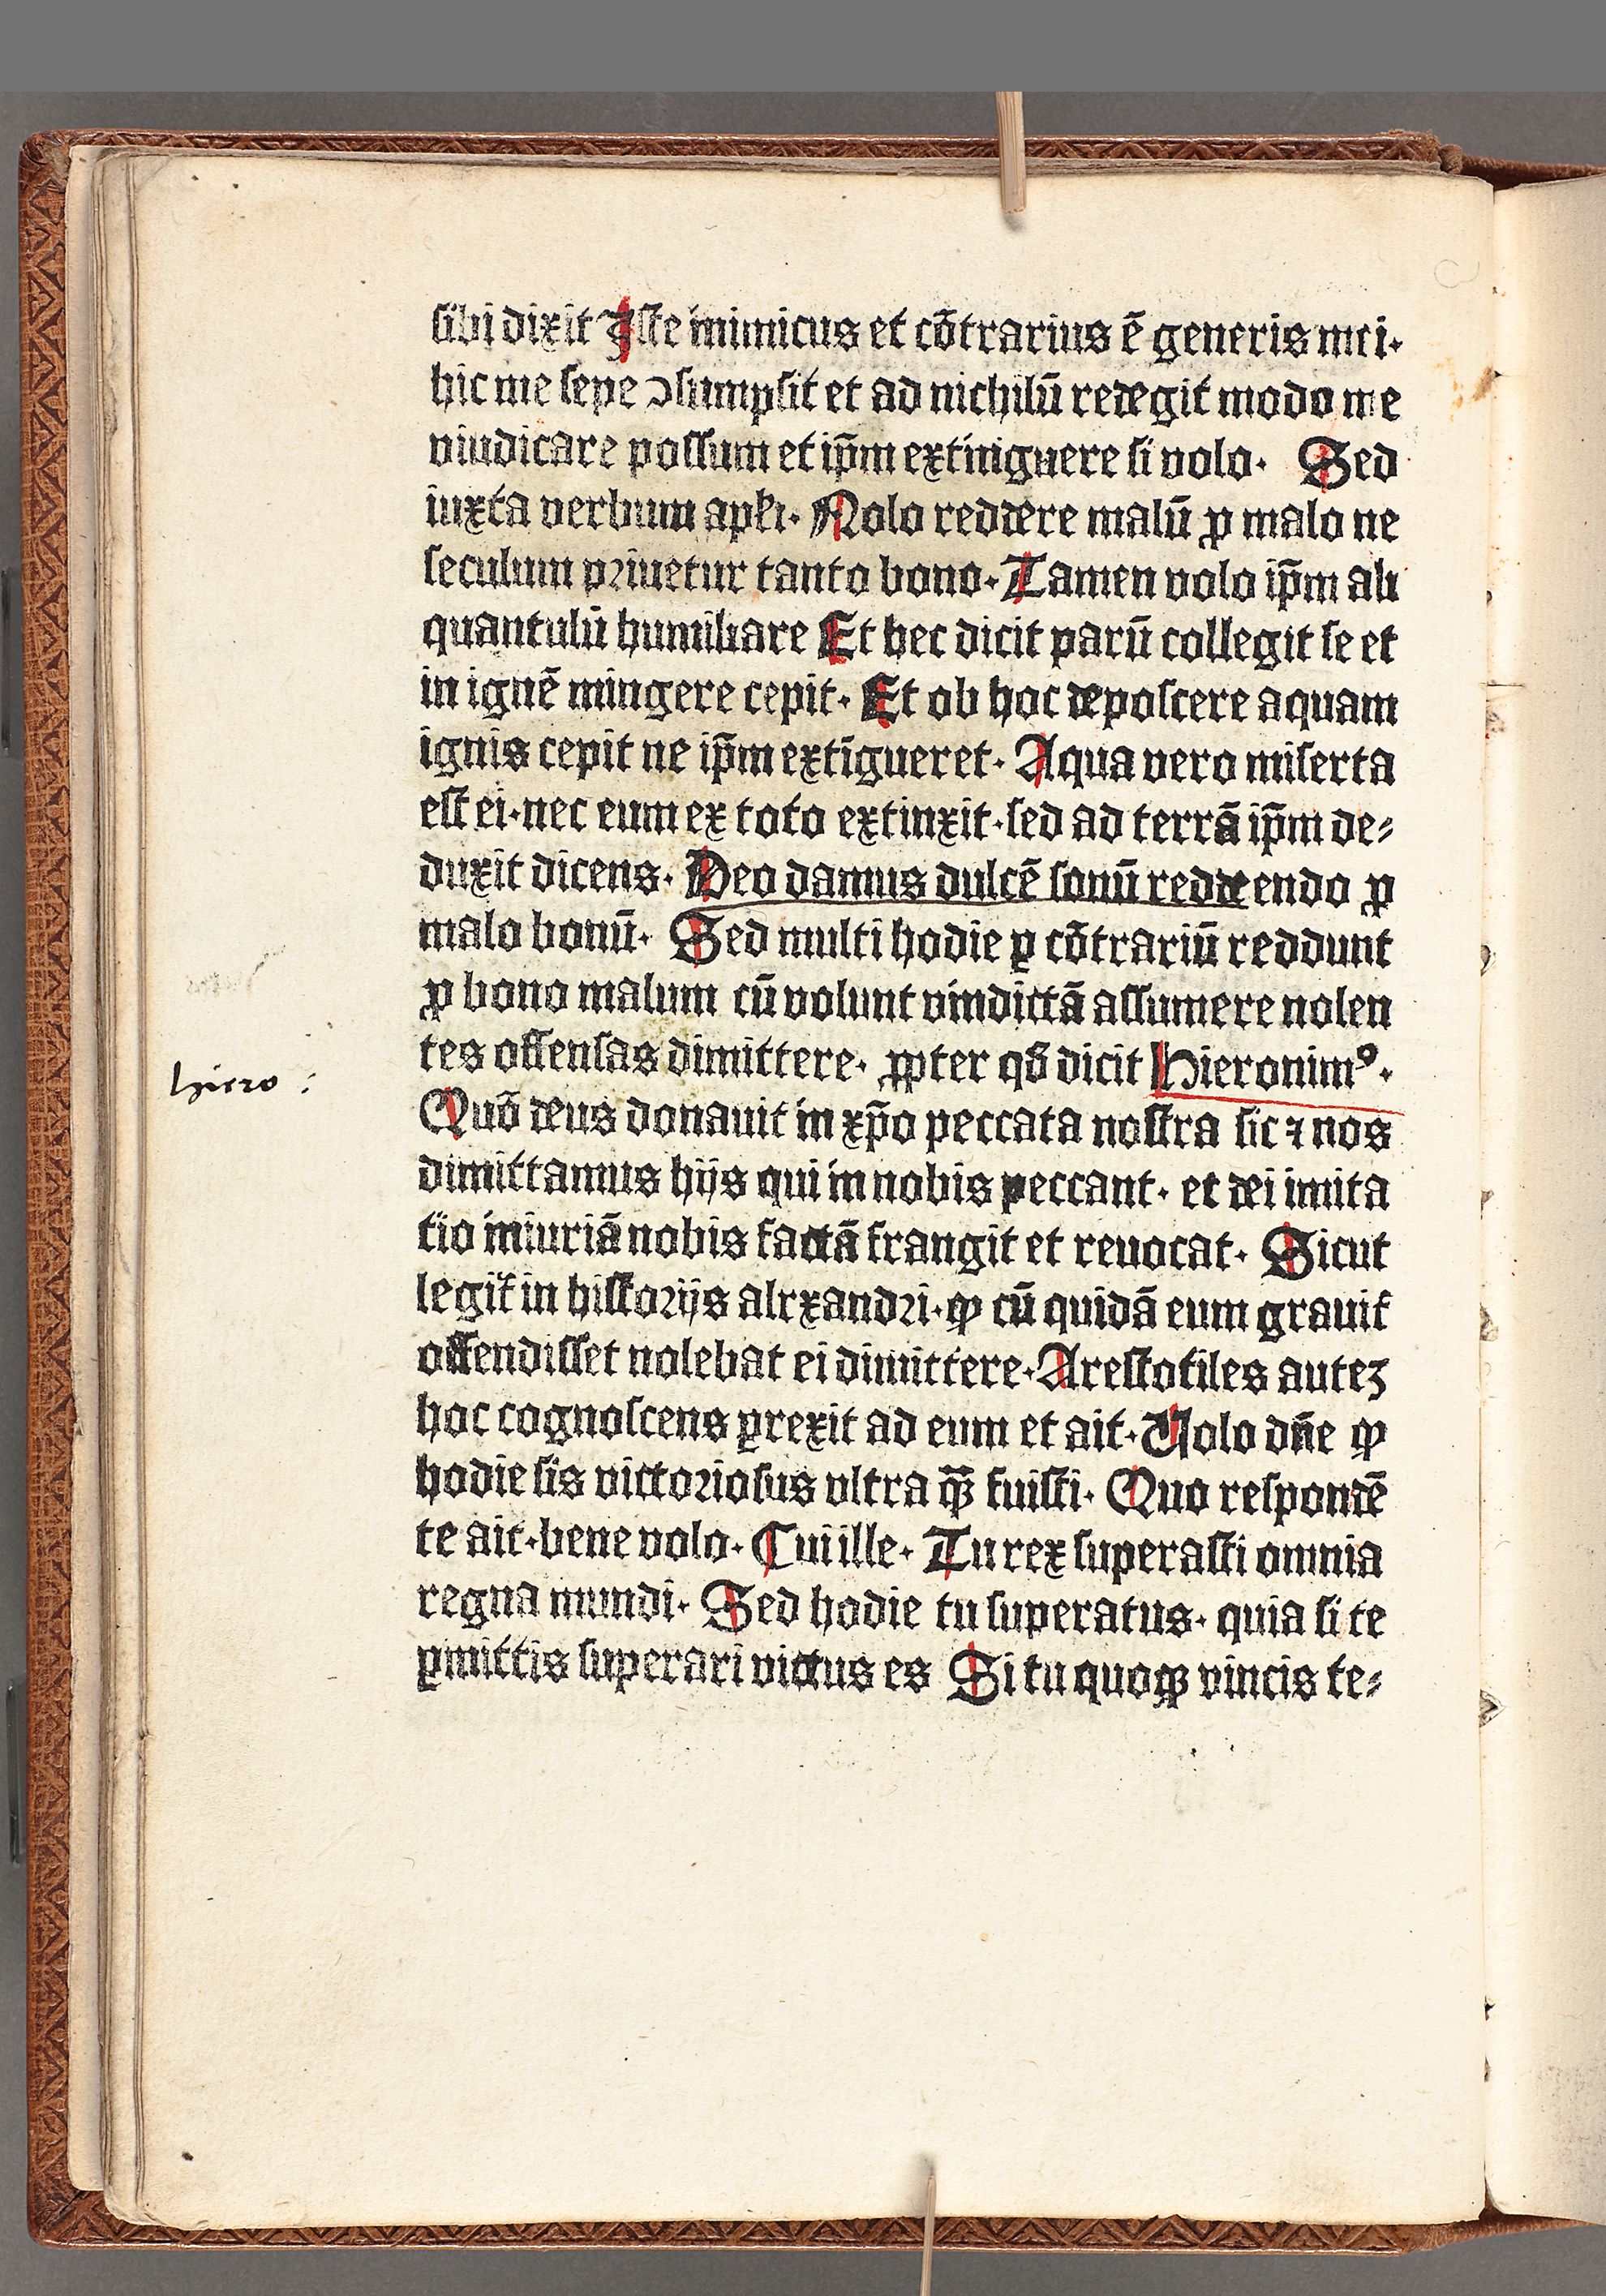 sibi dixit Iste inimicus et cōtrarius ē generis mei·
hic me sepe ↄsumpsit et ad nichilū redegit modo me
viudicare possum et ip̄m extiniguere si volo· Sed
iuxta verbum apl̄i· Nolo reddere malū ꝓ malo ne
seculum priuetur tanto bono· Tamen volo ip̄m ali
quantulū humiliare Et hec dicit parū collegit se et
in ignē mingere cepit· Et ob hoc deposcere aquam
ignis cepit ne ip̄m extīgueret· Aqua vero miserta
est ei·nec eum ex toto extinxit·sed ad terrā ip̄m de⸗
duxit dicens· Deo damus dulcē sonū reddeendo ꝓ
malo bonū· Sed multi hodie ꝑ cōtrariū reddunt
ꝓ bono malum cū volunt vindictā assumere nolen
tes offensas dimittere· ꝓpter qd̄ dicit Hieronimꝰ·
hiero :
Quō deus donauit in xp̄o peccata nostra sic ⁊ nos
dimittamus hijs qui in nobis peccant· et dei imita
tio iniuriā nobis factā frangit et reuocat· Sicut
legit̄ in historijs alexandri·ꝙ cū quidā eum grauit̄
offendisset nolebat ei dimittere·Arestotiles auteꝫ
hoc cognoscens ꝑrexit ad eum et ait·Volo dn̄e ꝙ
hodie sis victoriosus vltra qꝫ̄ fuisti· Quo respondē
te ait·bene volo· Cui ille· Tu rex superasti omnia
regna mundi· Sed hodie tu superatus· quia si te
ꝑmittis superari victus es Si tu quoqꝫ vincis te⸗